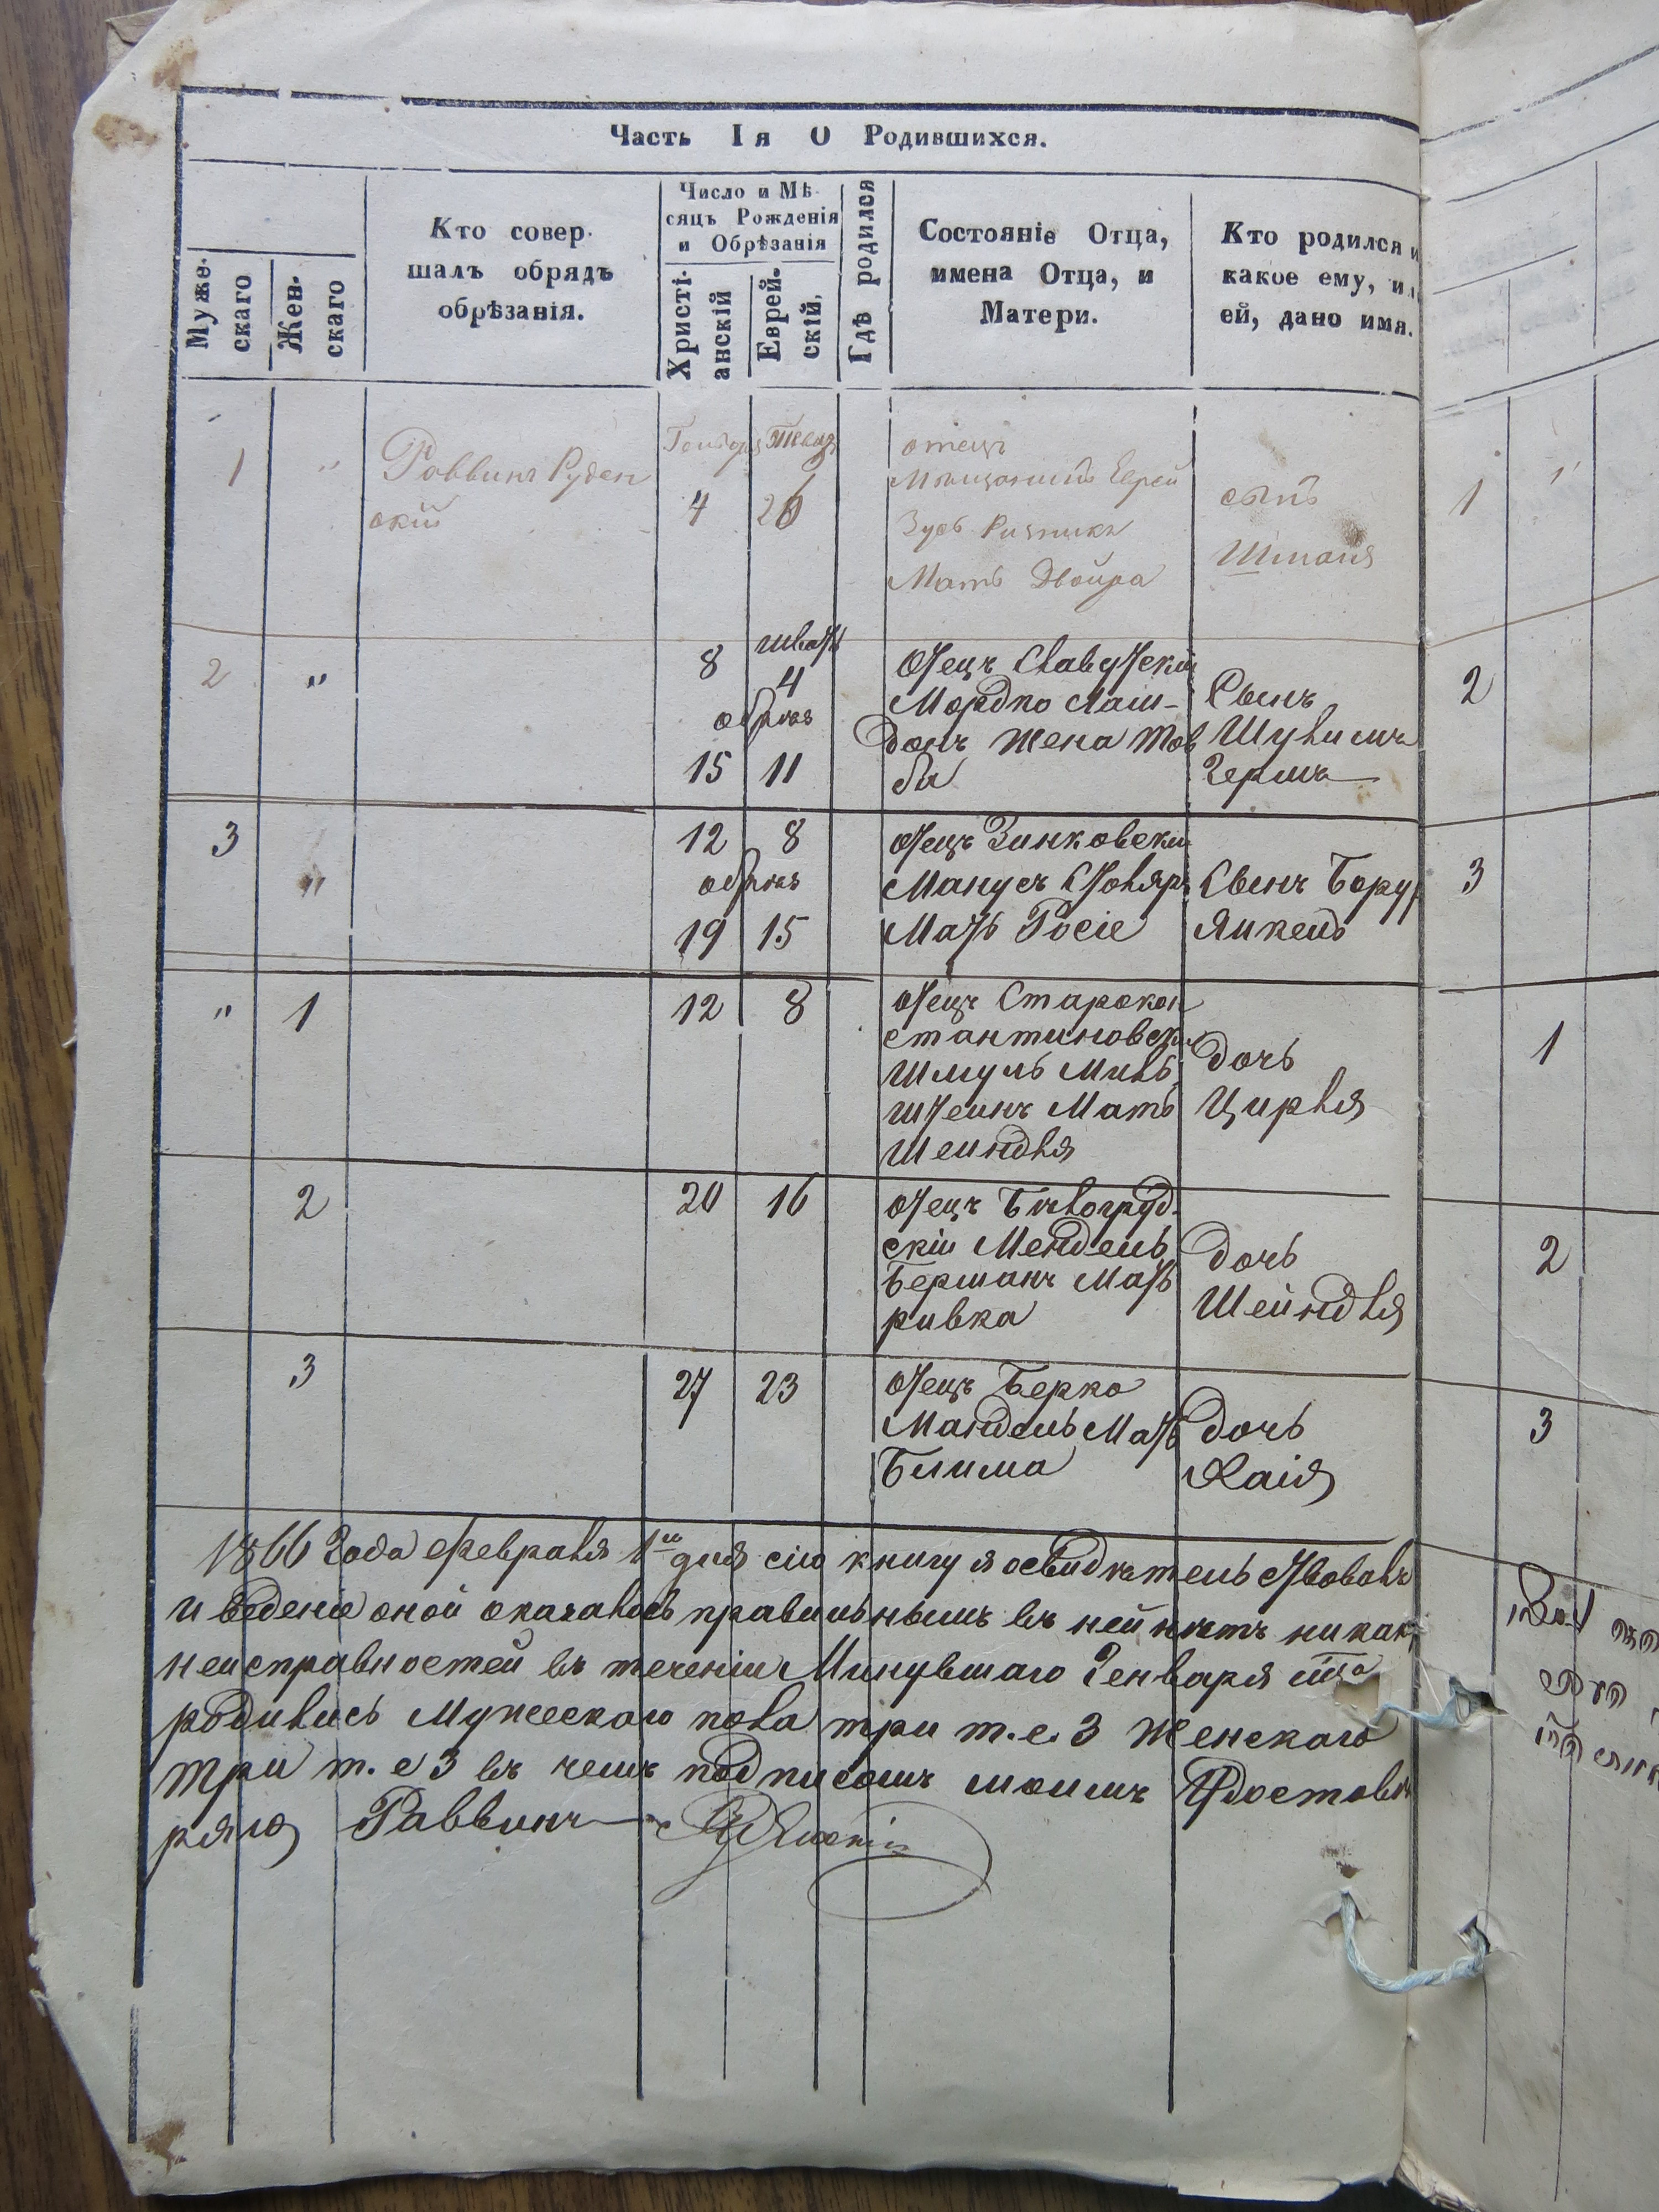 Часть Iя О Родившихся.
Муже-
скаго
Жен-
скаго
Кто совер-
шалъ обрядъ
обрѣзанія.
Число и Мѣ-
сяцъ Рожденія
и Обрѣзанія
Христі-
анскій
Еврей-
скій.
Гдѣ родился
Состояніе Отца,
имена Отца, и
Матери.
Кто родился и
какое ему, или
ей, дано имя.
1 "
Раввинъ Руден
скій
4 26
отецъ
Мещанинъ Еврей
Зусь Ризникъ
Мать Двойра
сынъ
1
2 "
8 4
обрѣз
15 11
Отецъ Славутскій
Мордко Лаш-
донъ жена Тов
ба
Сынъ
Шулимъ
Гершъ
2
3 "
12 8
обрѣз
19 15
Отецъ Зинковскій
Манусъ Столяръ
Мать Росіе
Сынъ Борух
Янкель
3
" 1
12 8
Отецъ Старокон
стантиновскій
Шмуль Миль
штеинъ Мать
Шеиндля
дочь
Цирля
1
2
20 16
Отецъ Бѣлогруд-
скій Мендель
Бершанъ Мать
ривка
дочь
Шейндля
2
3
27 23
Отецъ Берко
Мандель Мать
Блима
дочь
Хаія
3
1866 Года Февраля 1го дня сію книгу я освидѣтельствовалъ
и веденіе оной оказалось правильнымъ въ ней нѣтъ никак
неисправностей въ теченіи Минувшаго Генваря мца
родились Мужескаго пола три т.е. 3 Женскаго
три т.е 3 въ чемъ подписомъ моимъ Удостовѣ
ряю Раввинъ